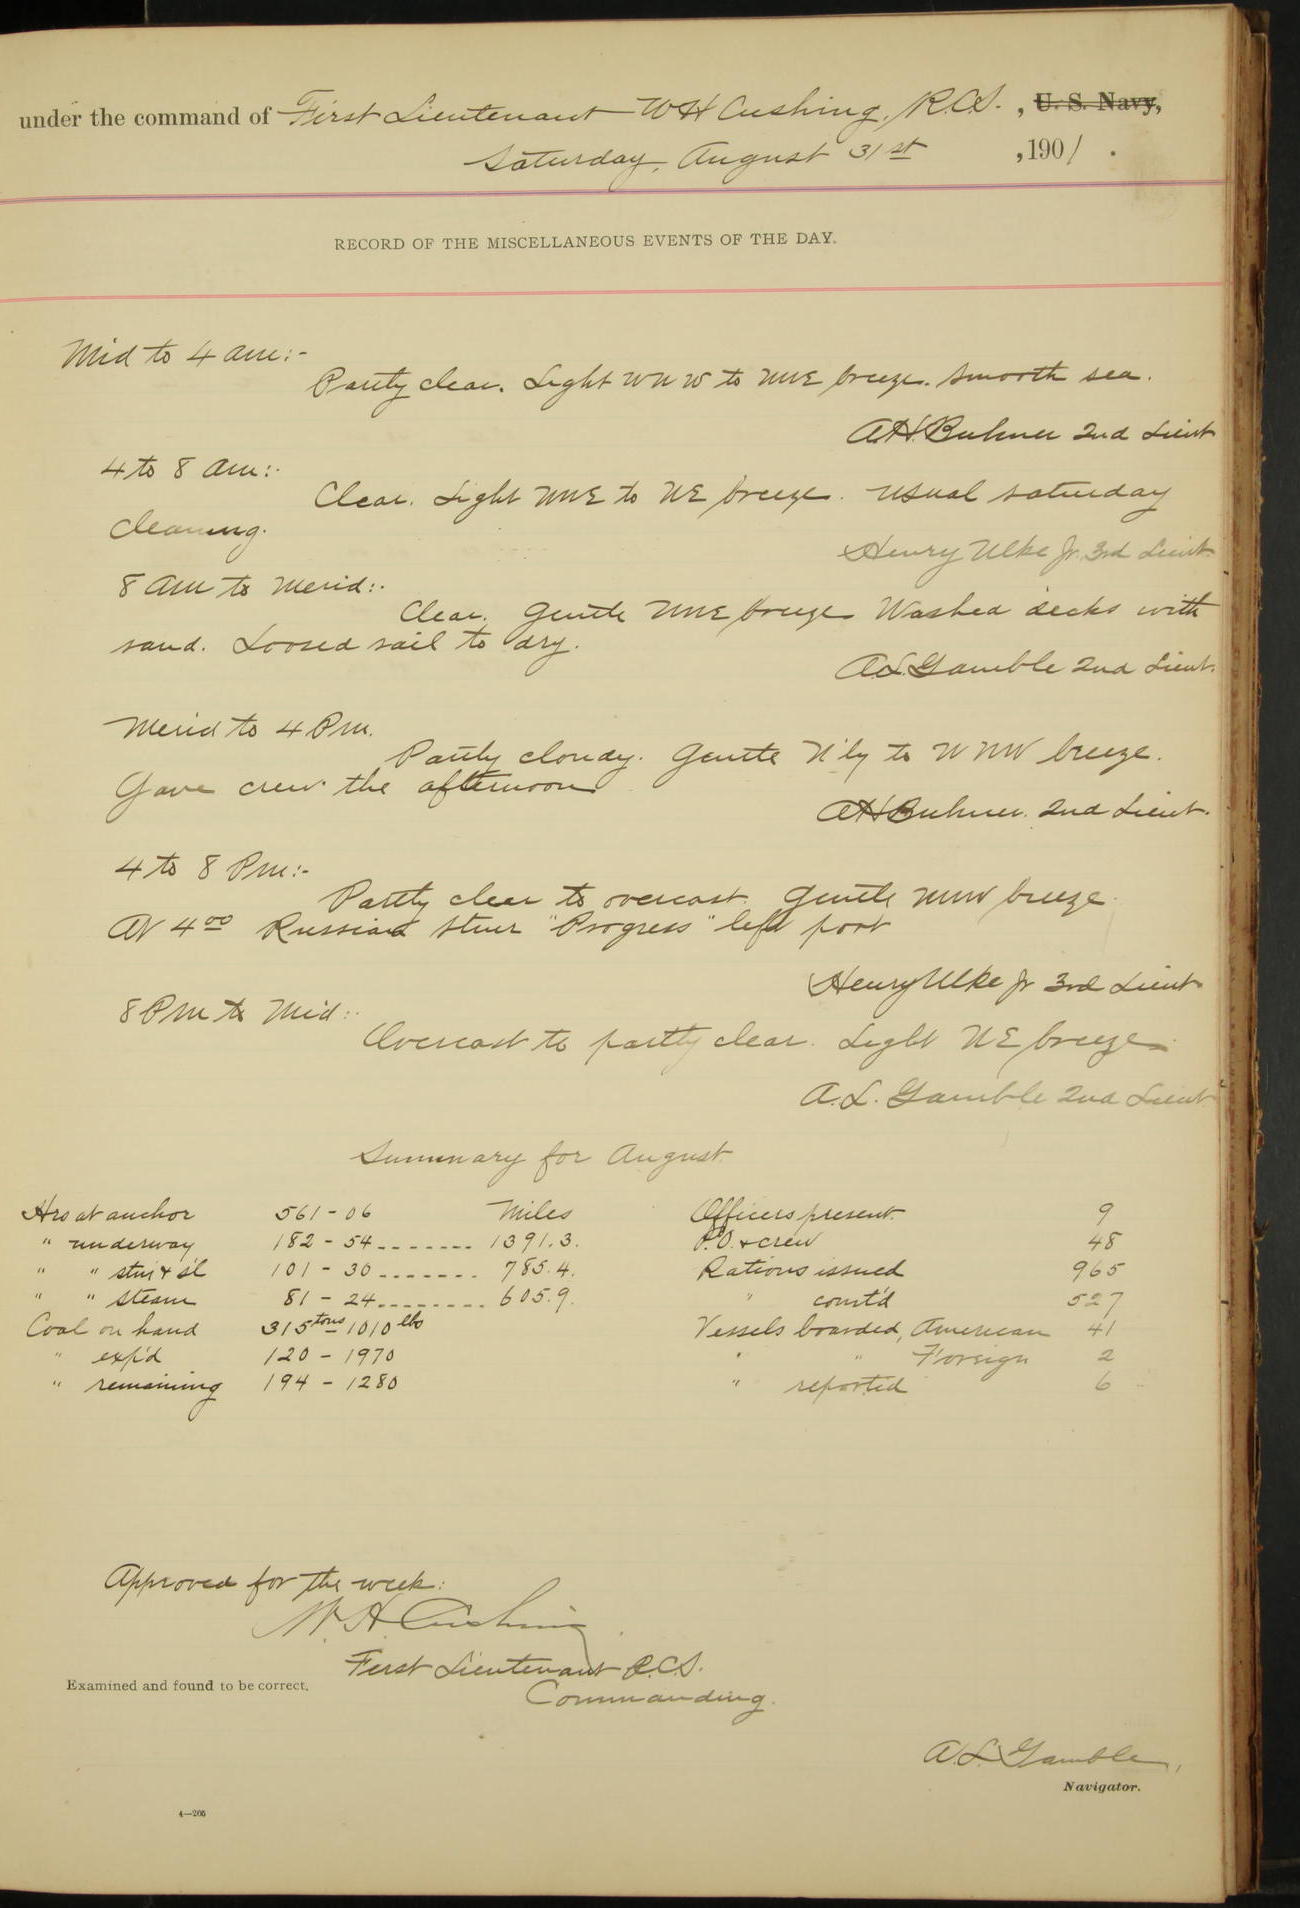 under the command of First Lieutenant W H Cushing, R.C.S. , U. S. Navy,
Saturday, August 31st , 1901 .
RECORD OF THE MISCELLANEOUS EVENTS OF THE DAY.
Mid to 4 am:-
Partly clear. Light WNW to NNE breeze. Smooth sea.
A.H. Buhner 2nd Lieut
4 to 8 am:-
Clear. Light NNE to NE breeze. Usual Saturday
cleaning.
Henry Ulke Jr. 3rd Lieut.
8 am to Merid:-
Clear. Gentle NNE breeze Washed decks with
sand. Loosed sail to dry.
A.L. Gamble 2nd Lieut.
Merid to 4 Pm.
Partly cloudy. Gentle N'ly to WNW breeze.
Gave crew the afternoon
A H Buhner. 2nd Lieut.
4 to 8 Pm:-
Partly clear to overcast. Gentle NNW breeze.
At 4 00 Russian Stmr "Progress" left port
Henry Ulke Jr 3rd Lieut
8 Pm to Mid:-
Overcast to partly clear. Light NE breeze
A. L. Gamble 2nd Lieut
Summary for August
Hrs at anchor 561 - 06 Miles Officers present. 9
" underway 182 - 54 ....... 1391.3. P.O. & crew 48
" " stm & s'l 101 - 30 ....... 785.4. Rations issued 965
" " steam 81 - 24 ........ 605.9. " comt'd 527
Coal on hand 315 tons - 1010 lbs Vessels boarded, American 41
" exp'd 120 - 1970 " " Foreign 2
" remaining 194 - 1280 " reported 6
Approved for the week:
W. H. Cushing
First Lieutenant R.C.S.
Examined and found to be correct.
Commanding.
A. L. Gamble,
Navigator.
4—205